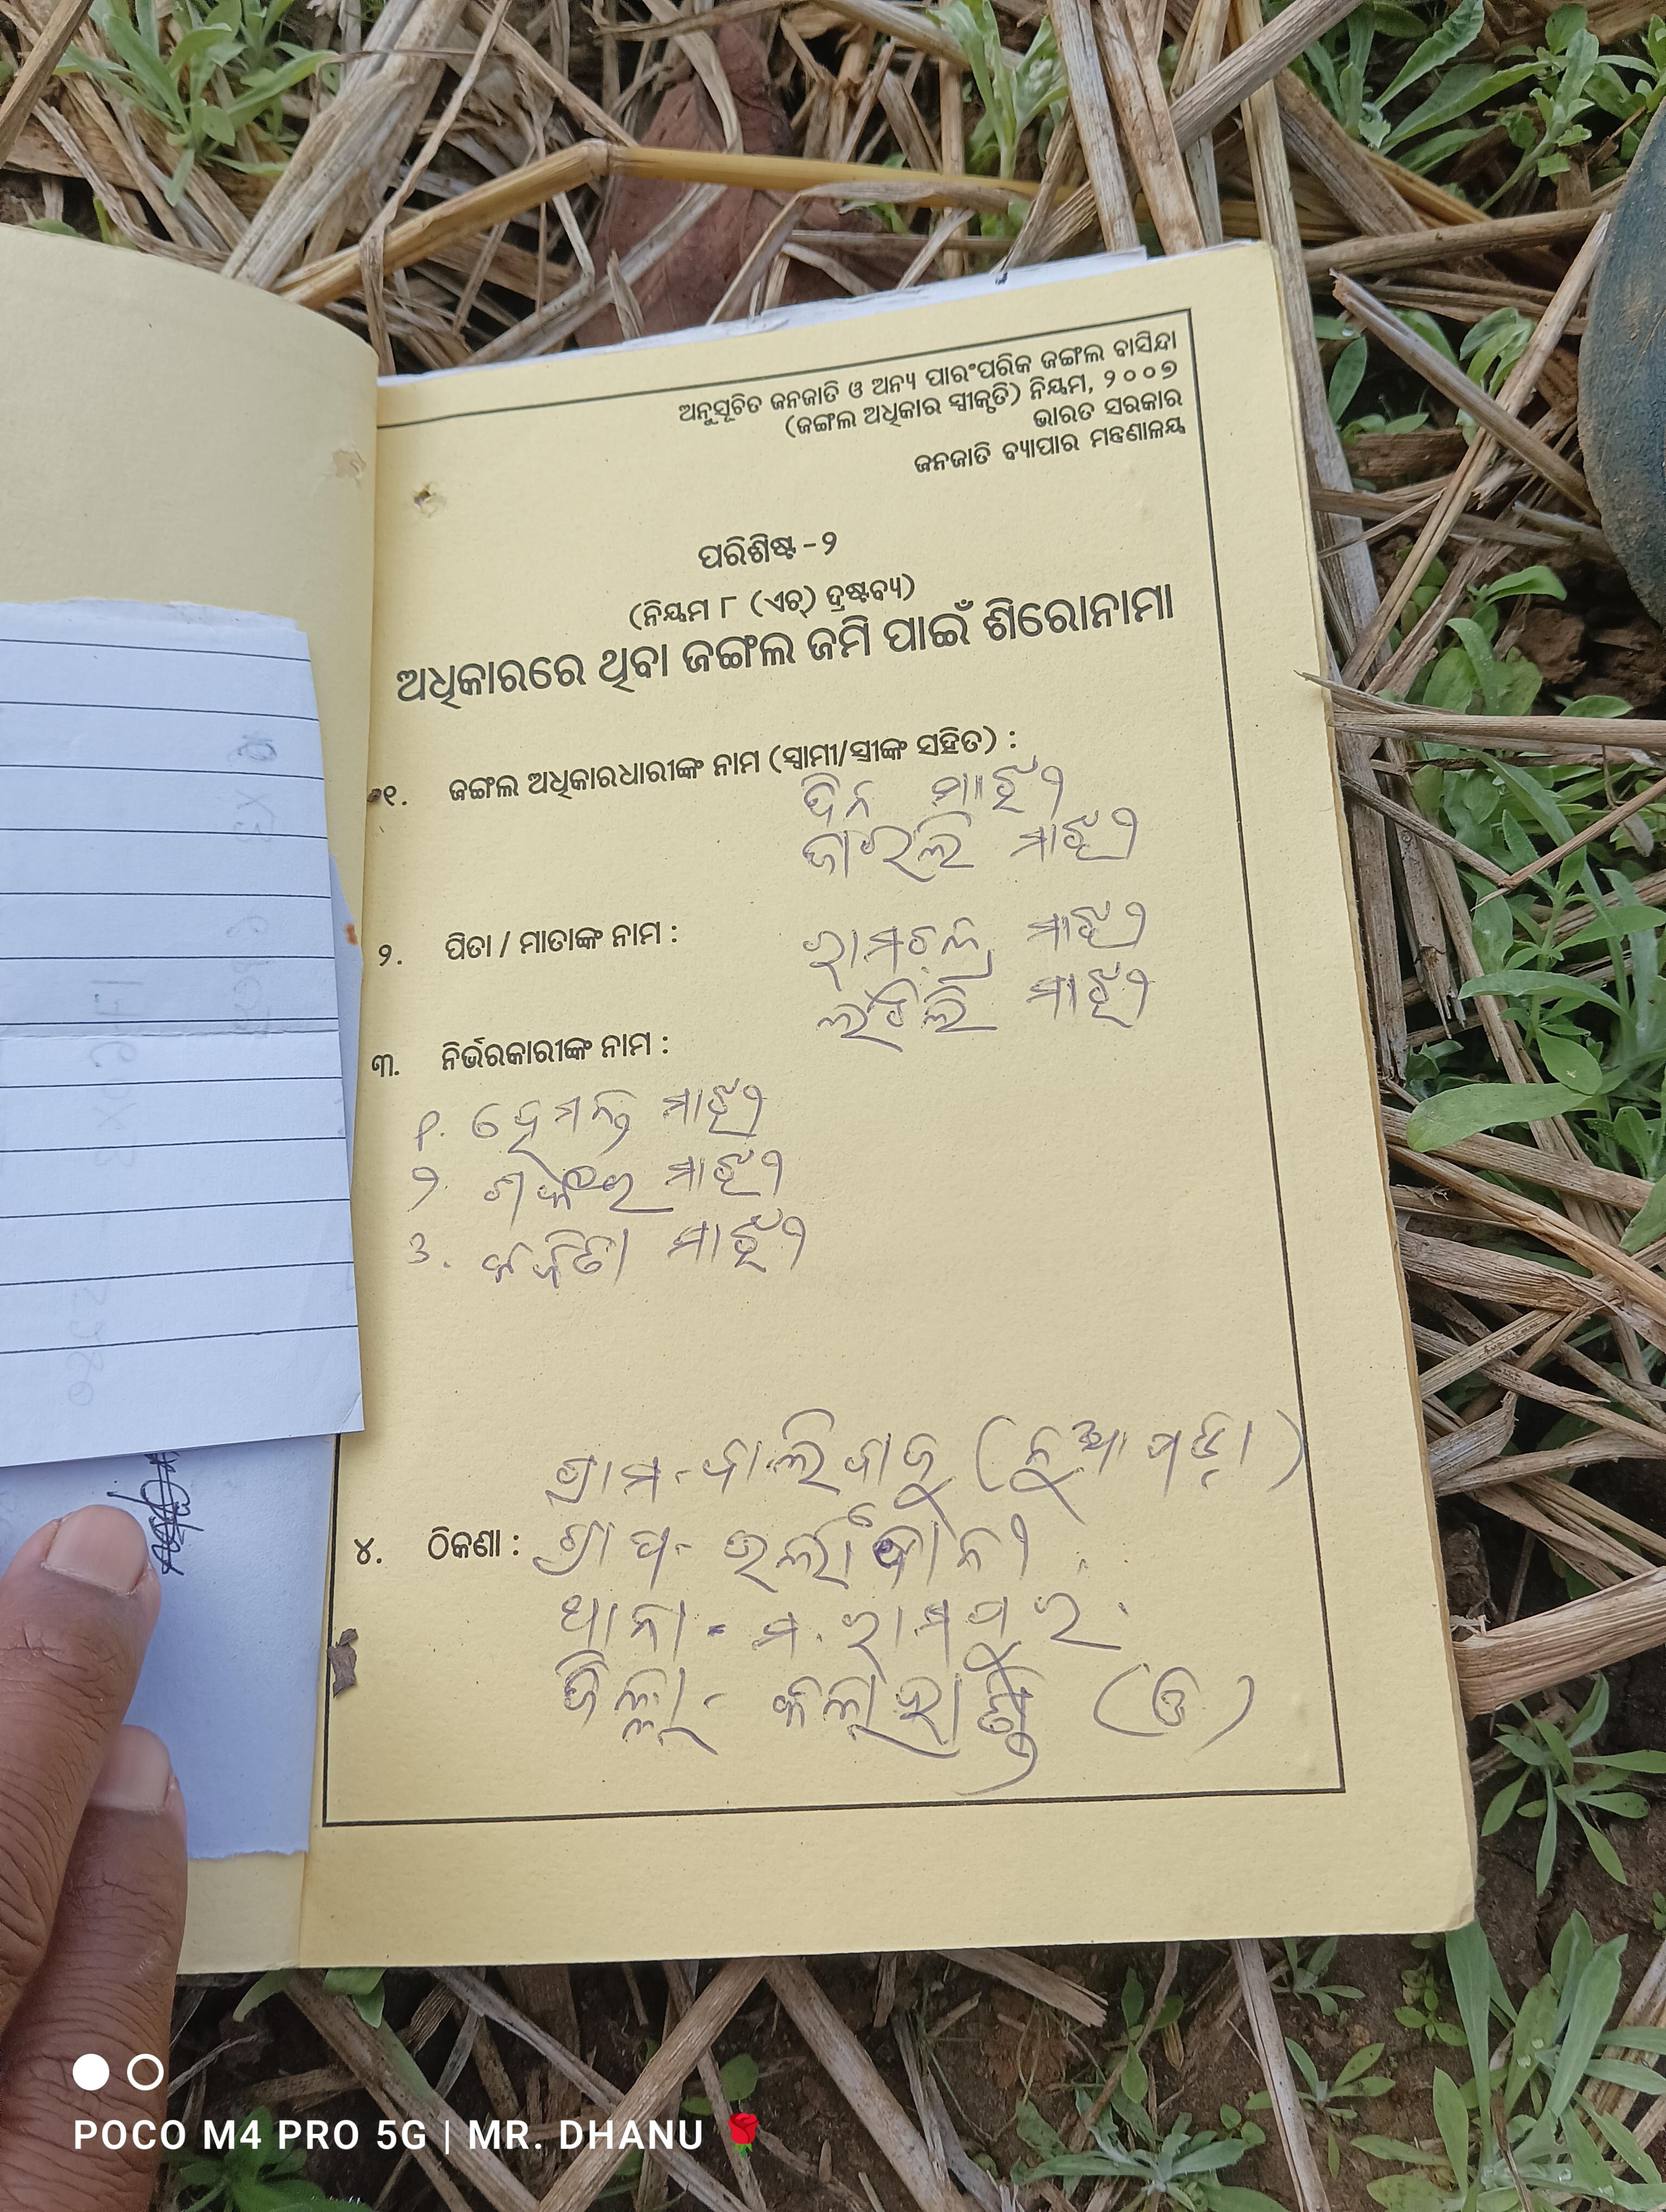 ଅନୁସୂଚିତ ଜନଜାତି ଓ ଅନ୍ୟ ପାରଂପରିକ ଜଙ୍ଗଲ ବାସିନ୍ଦା
(ଜଙ୍ଗଲ ଅଧିକାର ସ୍ୱୀକୃତି) ନିୟମ, ୨୦୦୭
ଭାରତ ସରକାର
ଜନଜାତି ବ୍ୟାପାର ମନ୍ତ୍ରଣାଳୟ
ପରିଶିଷ୍ଟ-୨
(ନିୟମ ୮ (ଏଚ୍) ଦ୍ରଷ୍ଟବ୍ୟ)
ଅଧିକାରରେ ଥିବା ଜଙ୍ଗଲ ଜମି ପାଇଁ ଶିରୋନାମା
୧. ଜଙ୍ଗଲ ଅଧିକାରଧାରୀଙ୍କ ନାମ (ସ୍ୱାମୀ/ସ୍ତ୍ରୀଙ୍କ ସହିତ) :
ଦିନ ମାଝୀ
ମାଝୀ
୨. ପିତା / ମାତାଙ୍କ ନାମ :
ରାମଚନ୍ଦ୍ର ମାଝୀ
ମାଝୀ
୩. ନିର୍ଭରକାରୀଙ୍କ ନାମ :
୧. ହେମନ୍ତ ମାଝୀ
୨. ମାଝୀ
୩. କବିତା ମାଝୀ
ଗ୍ରାମ- (ନୁଆପଡ଼ା)
୪. ଠିକଣା : ଗ୍ରା ପ-
ଥାନା- ମ. ରାମପୁର
ଜିଲ୍ଲା- କଳାହାଣ୍ଡି (ଓ)
POCO M4 PRO 5G | MR. DHANU 🌹